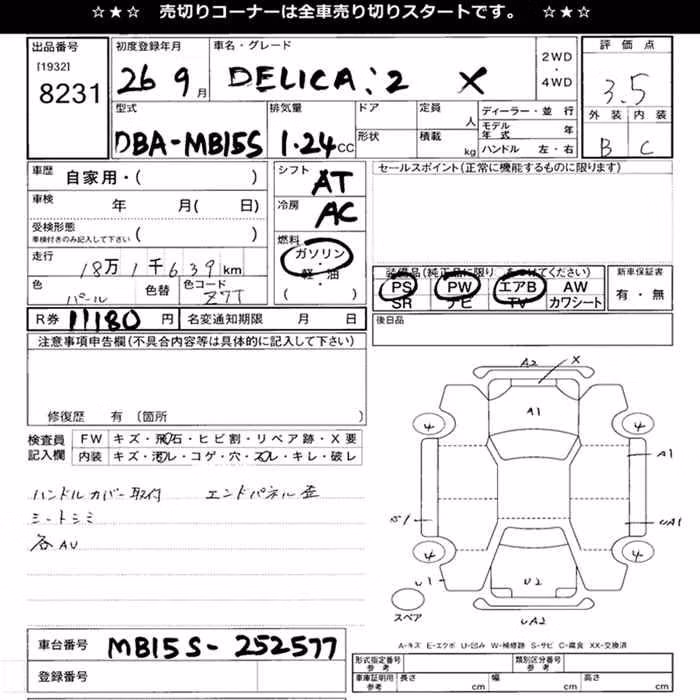 ☆★☆ 売切りコーナーは全車売り切りスタートです。 ☆★☆
出品番号
[1932]
8231
初度登録年月
26 9月
車名・グレード
DELICA:2 X
2WD
・
4WD
評価点
3.5
外装 内装
B C
型式
DBA-MB15S
排気量
1.24CC
ドア
形状
定員
人
積載
kg
ディーラー・並行
モデル年式 年
ハンドル 左・右
車歴 自家用・( )
車検 年 月( 日)
受検形態
車検付きのみ記入して下さい ( )
走行
18万1千639km
色 パール 色替 色コード Z7T
シフト AT
冷房 AC
燃料
ガソリン
・
軽・油
( )
セールスポイント(正常に機能するものに限ります)
装備品(純正品に限り をつけてください)
PS PW エアB AW
SR ナビ TV カワシート
新車保証書
有・無
後日品
R券 11180 円 名変通知期限 月 日
注意事項申告欄(不具合内容等は具体的に記入して下さい)
修復歴 有 (箇所 )
検査員
記入欄
FW キズ・飛石・ヒビ割・リペア跡・X要
内装 キズ・汚レ・コゲ・穴・スレ・キレ・破レ
ハンドルカバー取付 エンドパネル歪
シートシミ
各AU
A2 X
A1
4 4
A1
S1 UA1
4 4
U1 U2
UA2
スペア
A-キズ E-エクボ U-凹み W-補修跡 S-サビ C-腐食 XX-交換済
車台番号 MB15S-252577
登録番号
形式指定番号
参考
類別区分番号
参考
車庫証明用
参考
長さ cm 幅 cm 高さ cm